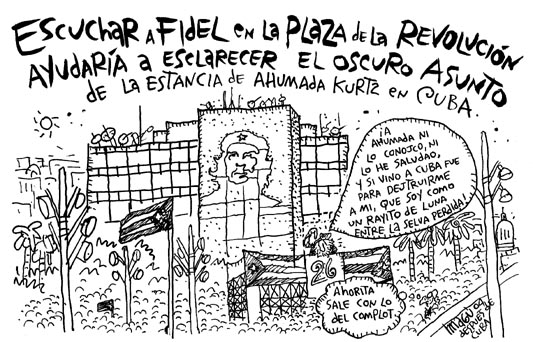 ESCUCHAR A FIDEL EN LA PLAZA DE LA REVOLUCIÓN
AYUDARÍA A ESCLARECER EL OSCURO ASUNTO
DE LA ESTANCIA DE AHUMADA KURTZ EN CUBA.
¡A
AHUMADA NI
LO CONOJCO, NI
LO HE SALUDAO,
Y SI VINO A CUBA FUE
PARA DEJTRUIRME
A MI, QUE SOY COMO
UN RAYITO DE LUNA
ENTRE LA SELVA PERDIDA!
26
AHORITA
SALE CON LO
DEL COMPLOT.
MAGÚ 09
DESPUÉS DE
CUBA